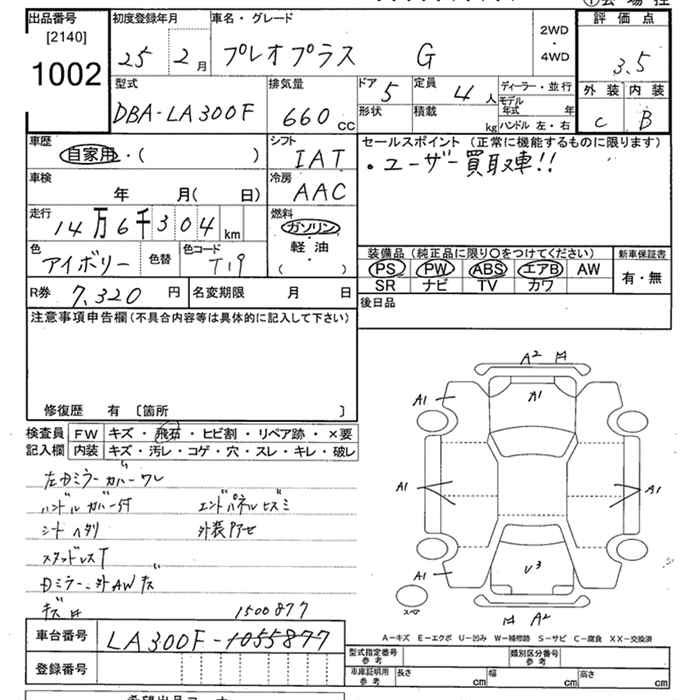 出品番号
[2140]
1002
初度登録年月
25 年 2 月
車名・グレード
プレオプラス G
2WD
・
4WD
評価点
3.5
外装 内装
C B
型式
DBA-LA300F
排気量
660 CC
ドア 5
定員 4 人
形状
積載 kg
ディーラー・並行
モデル年式 年
ハンドル 左・右
車歴
自家用・( )
シフト
IAT
セールスポイント (正常に機能するものに限ります)
・ユーザー買取車!!
車検
年 月( 日)
冷房
AAC
走行
14万6千304 km
燃料
ガソリン
・
軽・油
( )
色
アイボリー
色替
色コード
T19
装備品 (純正品に限り○をつけてください)
PS PW ABS エアB AW
SR ナビ TV カワ
新車保証書
有・無
R券 7,320 円
名変期限 月 日
後日品
注意事項申告欄(不具合内容等は具体的に記入して下さい)
修復歴 有 〔箇所 〕
検査員
記入欄
FW キズ・飛石・ヒビ割・リペア跡・×要
内装 キズ・汚レ・コゲ・穴・スレ・キレ・破レ
左Dミラーカバーワレ
ハンドルカバー付
エンドパネルヒズミ
シートヘタリ
外装アセ
スタッドレスT
Dミラー、外AWキズ
1500877
A2
A1
A1
A1
A1
A1
U3
A2
スペア
A-キズ E-エクボ U-凹み W-補修跡 S-サビ C-腐食 XX-交換済
車台番号
LA300F-1055877
登録番号
型式指定番号
参考
類別区分番号
参考
車庫証明用
参考
長さ cm
幅 cm
高さ cm